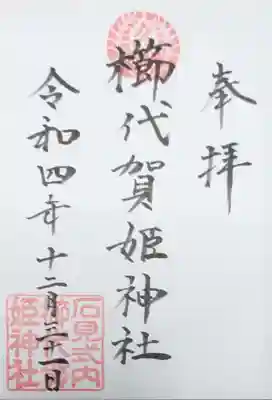 奉拝
櫛代賀姫神社
令和四年十二月三十一日
石見式内
姫神社